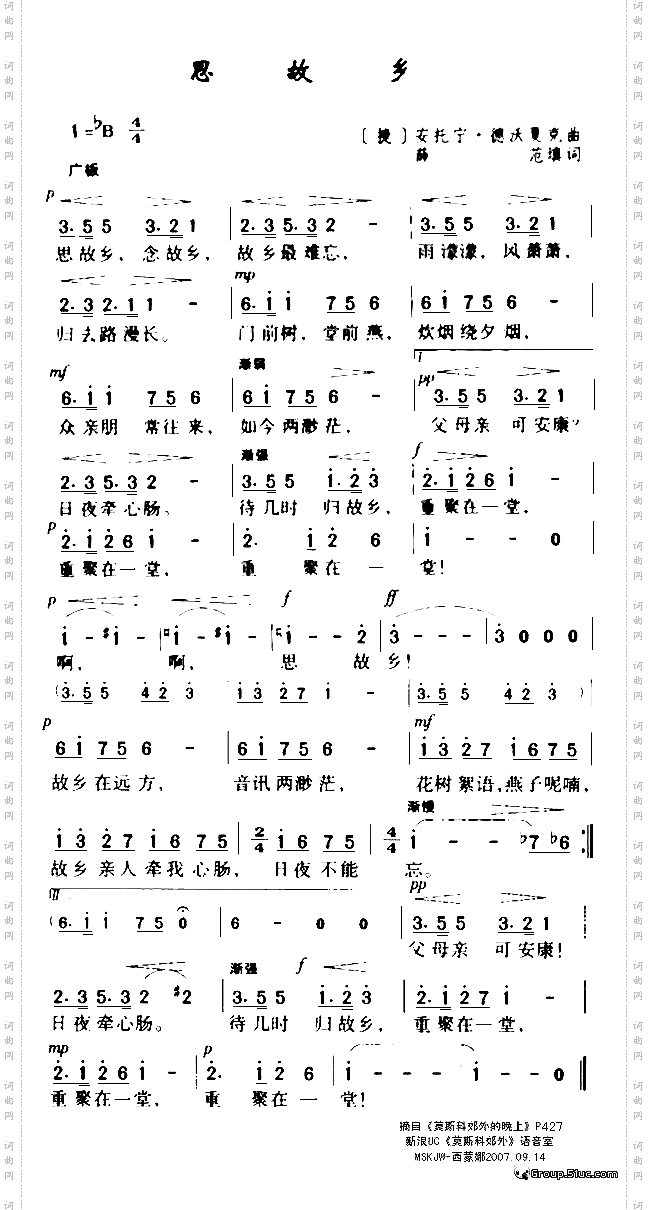 思 故 乡
1=♭B 4/4
〔捷〕安托宁·德沃夏克曲
薛 范填词
广板
p
3. 5 5 3. 2 1 | 2. 3 5. 3 2 - | 3. 5 5 3. 2 1
思故乡，念故乡，故乡最难忘，雨濛濛，风萧萧，
mp
2. 3 2. 1 1 - | 6. i i 7 5 6 | 6 i 7 5 6 -
归去路漫长。门前树，堂前燕，炊烟绕夕烟，
mf 渐弱 pp
6. i i 7 5 6 | 6 i 7 5 6 - | 3. 5 5 3. 2 1
众亲朋 常往来，如今两渺茫，父母亲 可安康？
渐强 f
2. 3 5. 3 2 - | 3. 5 5 i. 2 3 | 2. i 2 6 i -
日夜牵心肠。待几时 归故乡，重聚在一堂，
p
2. i 2 6 i - | 2. i 2 6 | i - - 0
重聚在一堂，重 聚在 一 堂！
p f ff
i - #i - | ♮i - #i - | i - i - 2 | 3 - - - | 3 0 0 0
啊，啊，思 故 乡！
(3. 5 5 4 2 3 | i 3 2 7 i - | 3. 5 5 4 2 3)
p mf
6 i 7 5 6 - | 6 i 7 5 6 - | i 3 2 7 i 6 7 5
故乡在远方，音讯两渺茫，花树絮语，燕子呢喃，
渐慢
i 3 2 7 i 6 7 5 | 2/4 i 6 7 5 | 4/4 i - - ♭7 ♭6 :‖
故乡亲人牵我心肠，日夜不能 忘。
pp
(6. i i 7 5 0 | 6 - 0 0 | 3. 5 5 3. 2 1
父母亲 可安康！
渐强 f
2. 3 5. 3 2 #2 | 3. 5 5 i. 2 3 | 2. i 2 7 i -
日夜牵心肠。待几时 归故乡，重聚在一堂，
mp p
2. i 2 6 i - | 2. i 2 6 | i - - - | i - - 0 ‖
重聚在一堂，重 聚在一 堂！
摘自《莫斯科郊外的晚上》P427
新浪UC《莫斯科郊外》语音室
MSKJW-西蒙娜2007.09.14
Group.51uc.com
词曲网